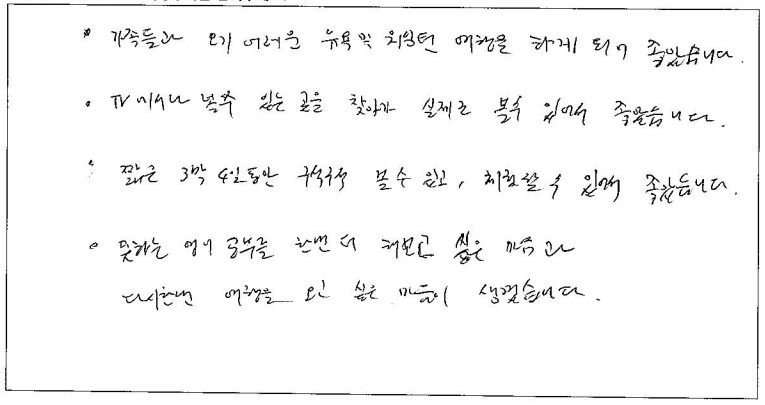 • 가족들과 오기 어려운 뉴욕 및 워싱턴 여행을 하게 되어 좋았습니다.
• TV에서나 볼수 있는 곳을 찾아가 실제로 볼수 있어서 좋았습니다.
• 짧은 3박 4일동안 구석구석 볼 수 있고, 체험할 수 있어서 좋았습니다.
• 못하는 영어 공부를 한번 더 해보고 싶은 마음과
다시한번 여행을 오고 싶은 마음이 생겼습니다.